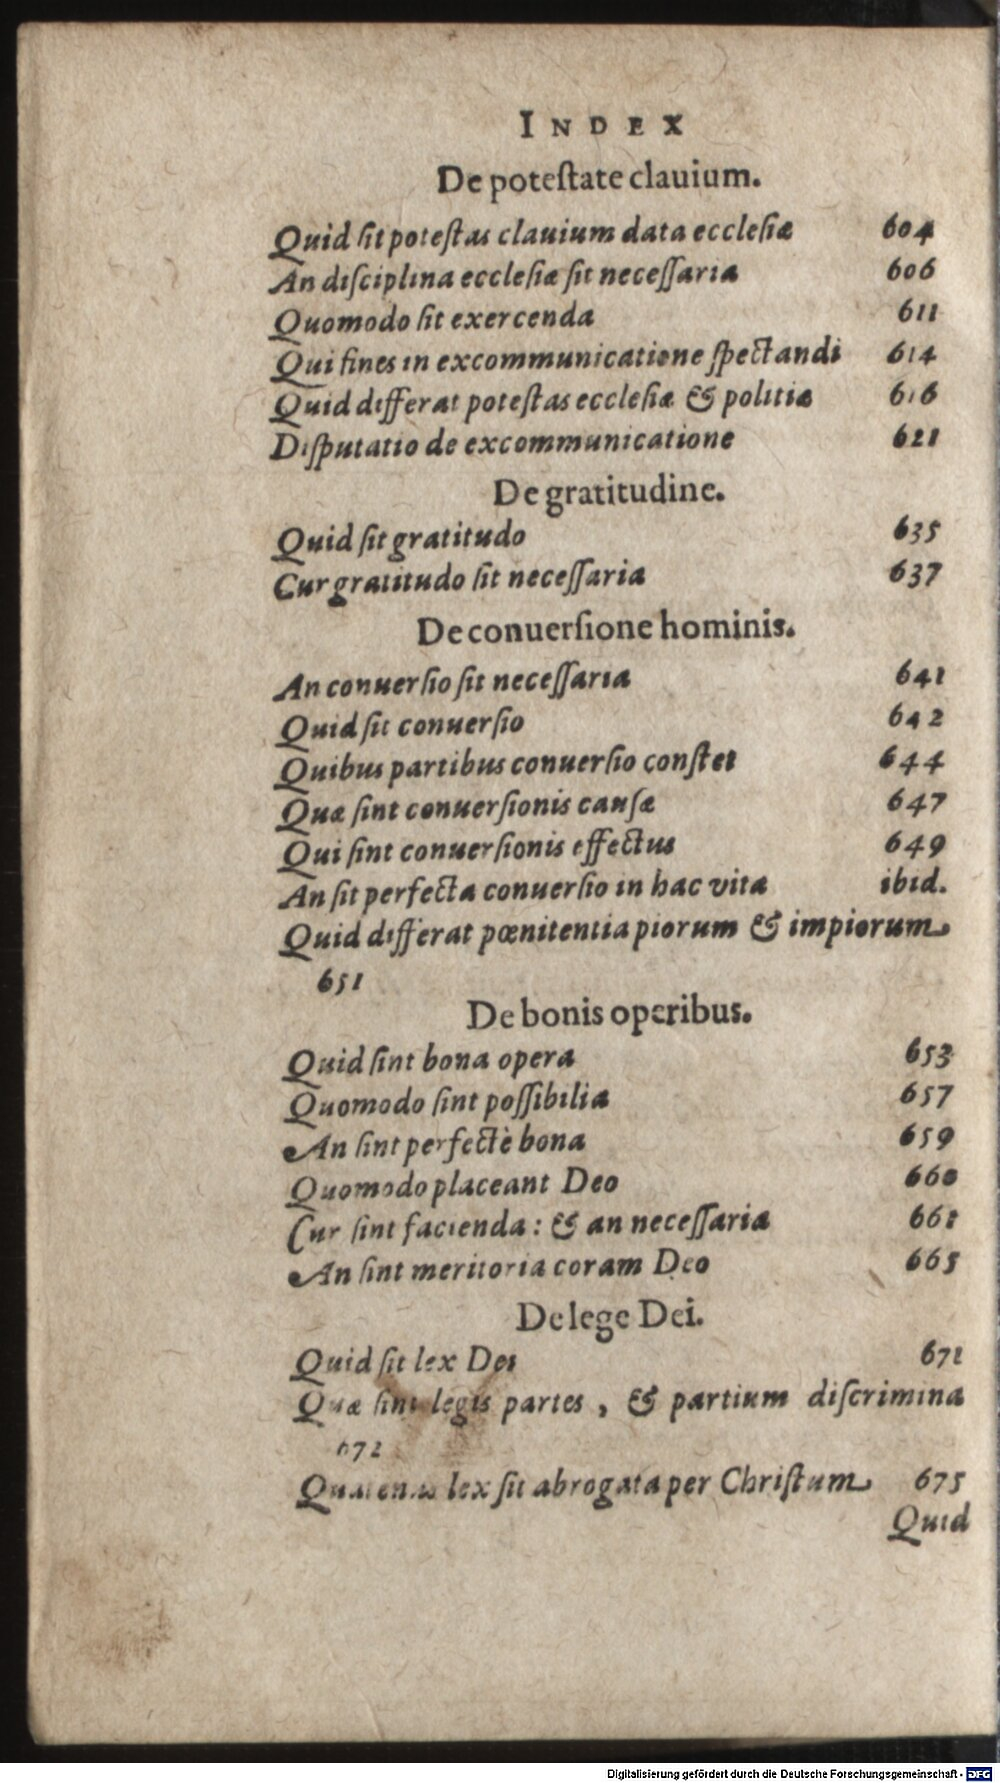 INDEX
De poteſtate clauium.
Quid ſit poteſtas clauium data eccleſiæ 604
An diſciplina eccleſiæ ſit neceſſaria 606
Quomodo ſit exercenda 611
Qui fines in excommunicatione ſpectandi 614
Quid differat poteſtas eccleſiæ & politiæ 616
Diſputatio de excommunicatione 621
De gratitudine.
Quid ſit gratitudo 635
Cur gratitudo ſit neceſſaria 637
De conuerſione hominis.
An conuerſio ſit neceſſaria 641
Quid ſit conuerſio 642
Quibus partibus conuerſio conſtet 644
Quæ ſint conuerſionis cauſæ 647
Qui ſint conuerſionis effectus 649
An ſit perfecta conuerſio in hac vita ibid.
Quid differat pœnitentia piorum & impiorum
651
De bonis operibus.
Quid ſint bona opera 653
Quomodo ſint poſſibilia 657
An ſint perfectè bona 659
Quomodo placeant Deo 660
Cur ſint facienda: & an neceſſaria 661
An ſint meritoria coram Deo 665
De lege Dei.
Quid ſit lex Dei 671
Quæ ſint legis partes, & partium diſcrimina
672
Quatenus lex ſit abrogata per Chriſtum 675
Quid
Digitalisierung gefördert durch die Deutsche Forschungsgemeinschaft - DFG